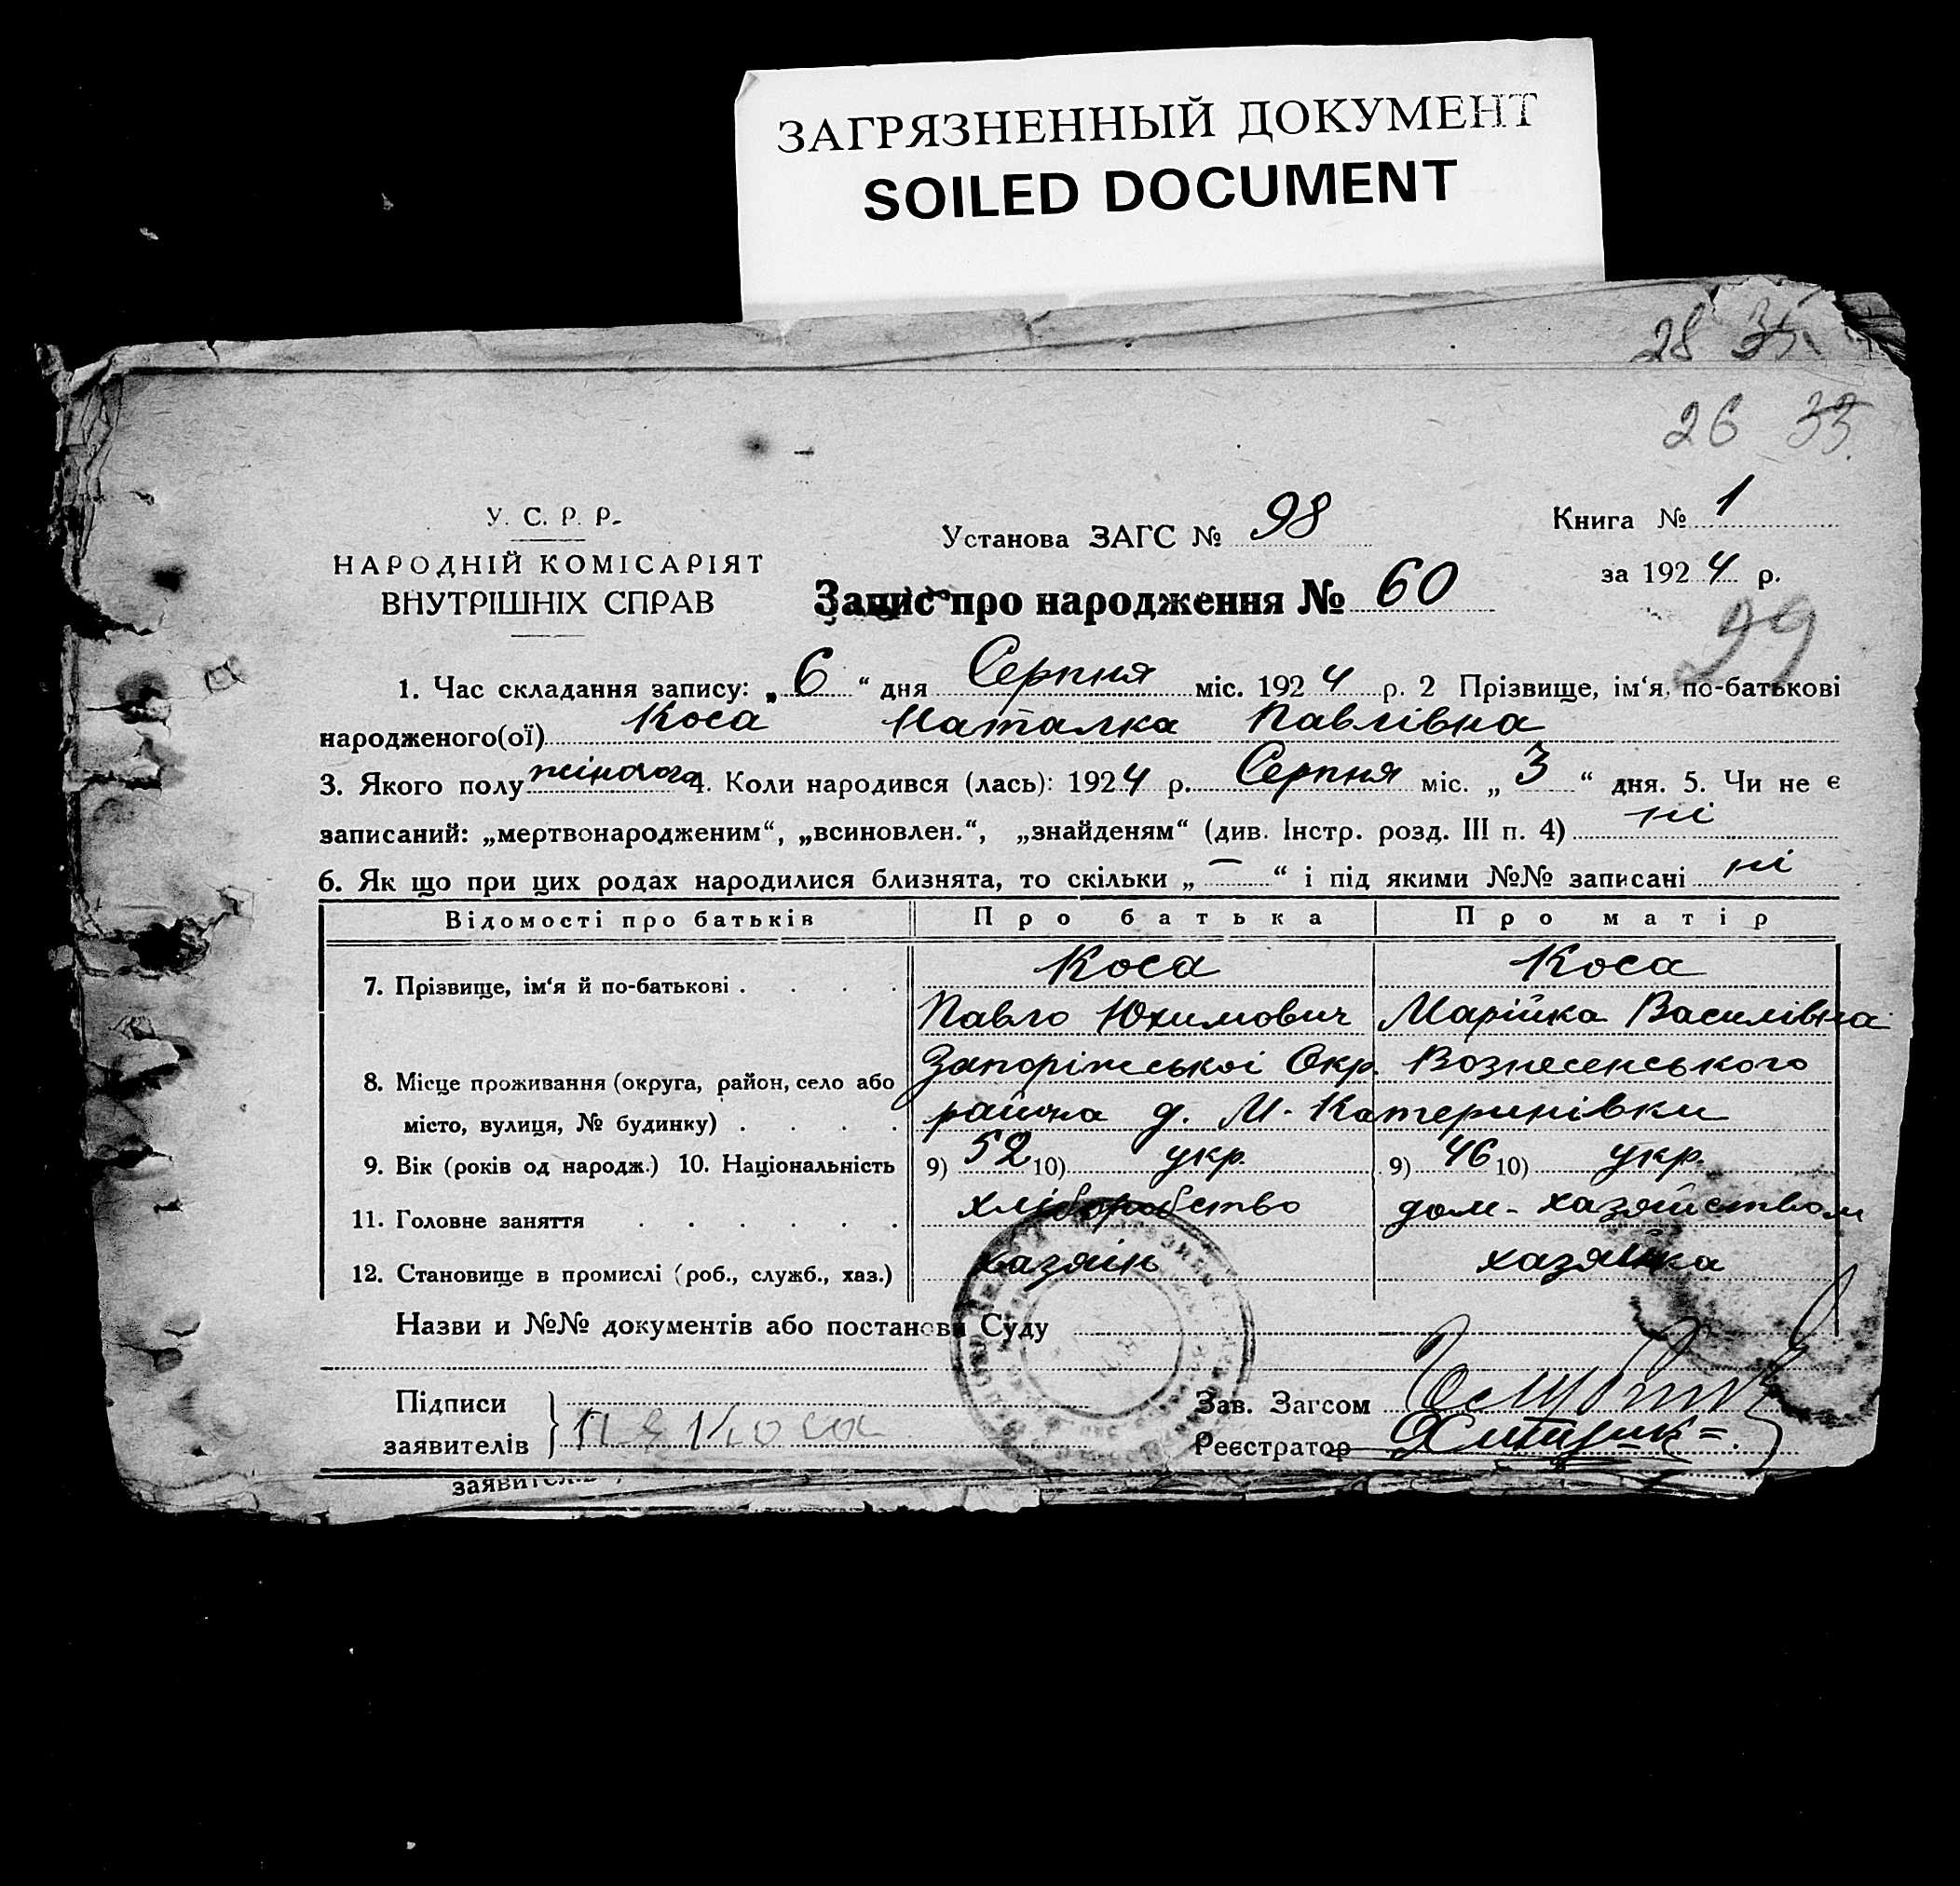 ЗАГРЯЗНЕННЫЙ ДОКУМЕНТ
SOILED DOCUMENT
28 35
26 33.
У. С. Р. Р.
НАРОДНІЙ КОМІСАРІЯТ
ВНУТРІШНІХ СПРАВ
Установа ЗАГС № 98
Книга № 1
за 1924 р.
Запис про народження № 60
29
1. Час складання запису: „6“ дня Серпня міс. 1924 р. 2 Прізвище, ім‘я, по-батькові
народженого(ої) Коса Наталка Павлівна
3. Якого полу жіночого 4. Коли народився (лась): 1924 р. Серпня міс. „3“ дня. 5. Чи не є
записаний: „мертвонародженим“, „всиновлен.“, „знайденям“ (див. Інстр. розд. III п. 4) ні
6. Як що при цих родах народилися близнята, то скільки „—“ і під якими №№ записані ні
Відомості про батьків Про батька Про матір
7. Прізвище, ім‘я й по-батькові . . . . Коса Коса
Павло Юхимович Марійка Василівна
8. Місце проживання (округа, район, село або Запоріжської Окр. Вознесенського
місто, вулиця, № будинку) . . . . района д. М-Катеринівки
9. Вік (років од народж.) 10. Національність 9) 52 10) укр. 9) 46 10) укр.
11. Головне заняття . . . . . . хліборобство дом-хазяйством
12. Становище в промислі (роб., служб., хаз.) хазяїн хазяйка
Назви и №№ документів або постанови Суду
Підписи
заявителів
Коса
Зав. Загсом
Реєстратор
заявителів